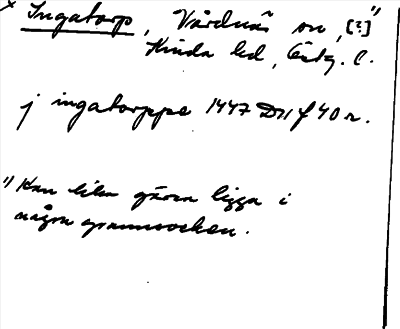 x Ingatorp, Vårdnäs sn, [?] 1)
Kinda hd, Östg. l.
j ingatorppe 1447 D11 f 40 r.
1) Kan lika gärna ligga i
någon grannsocken.